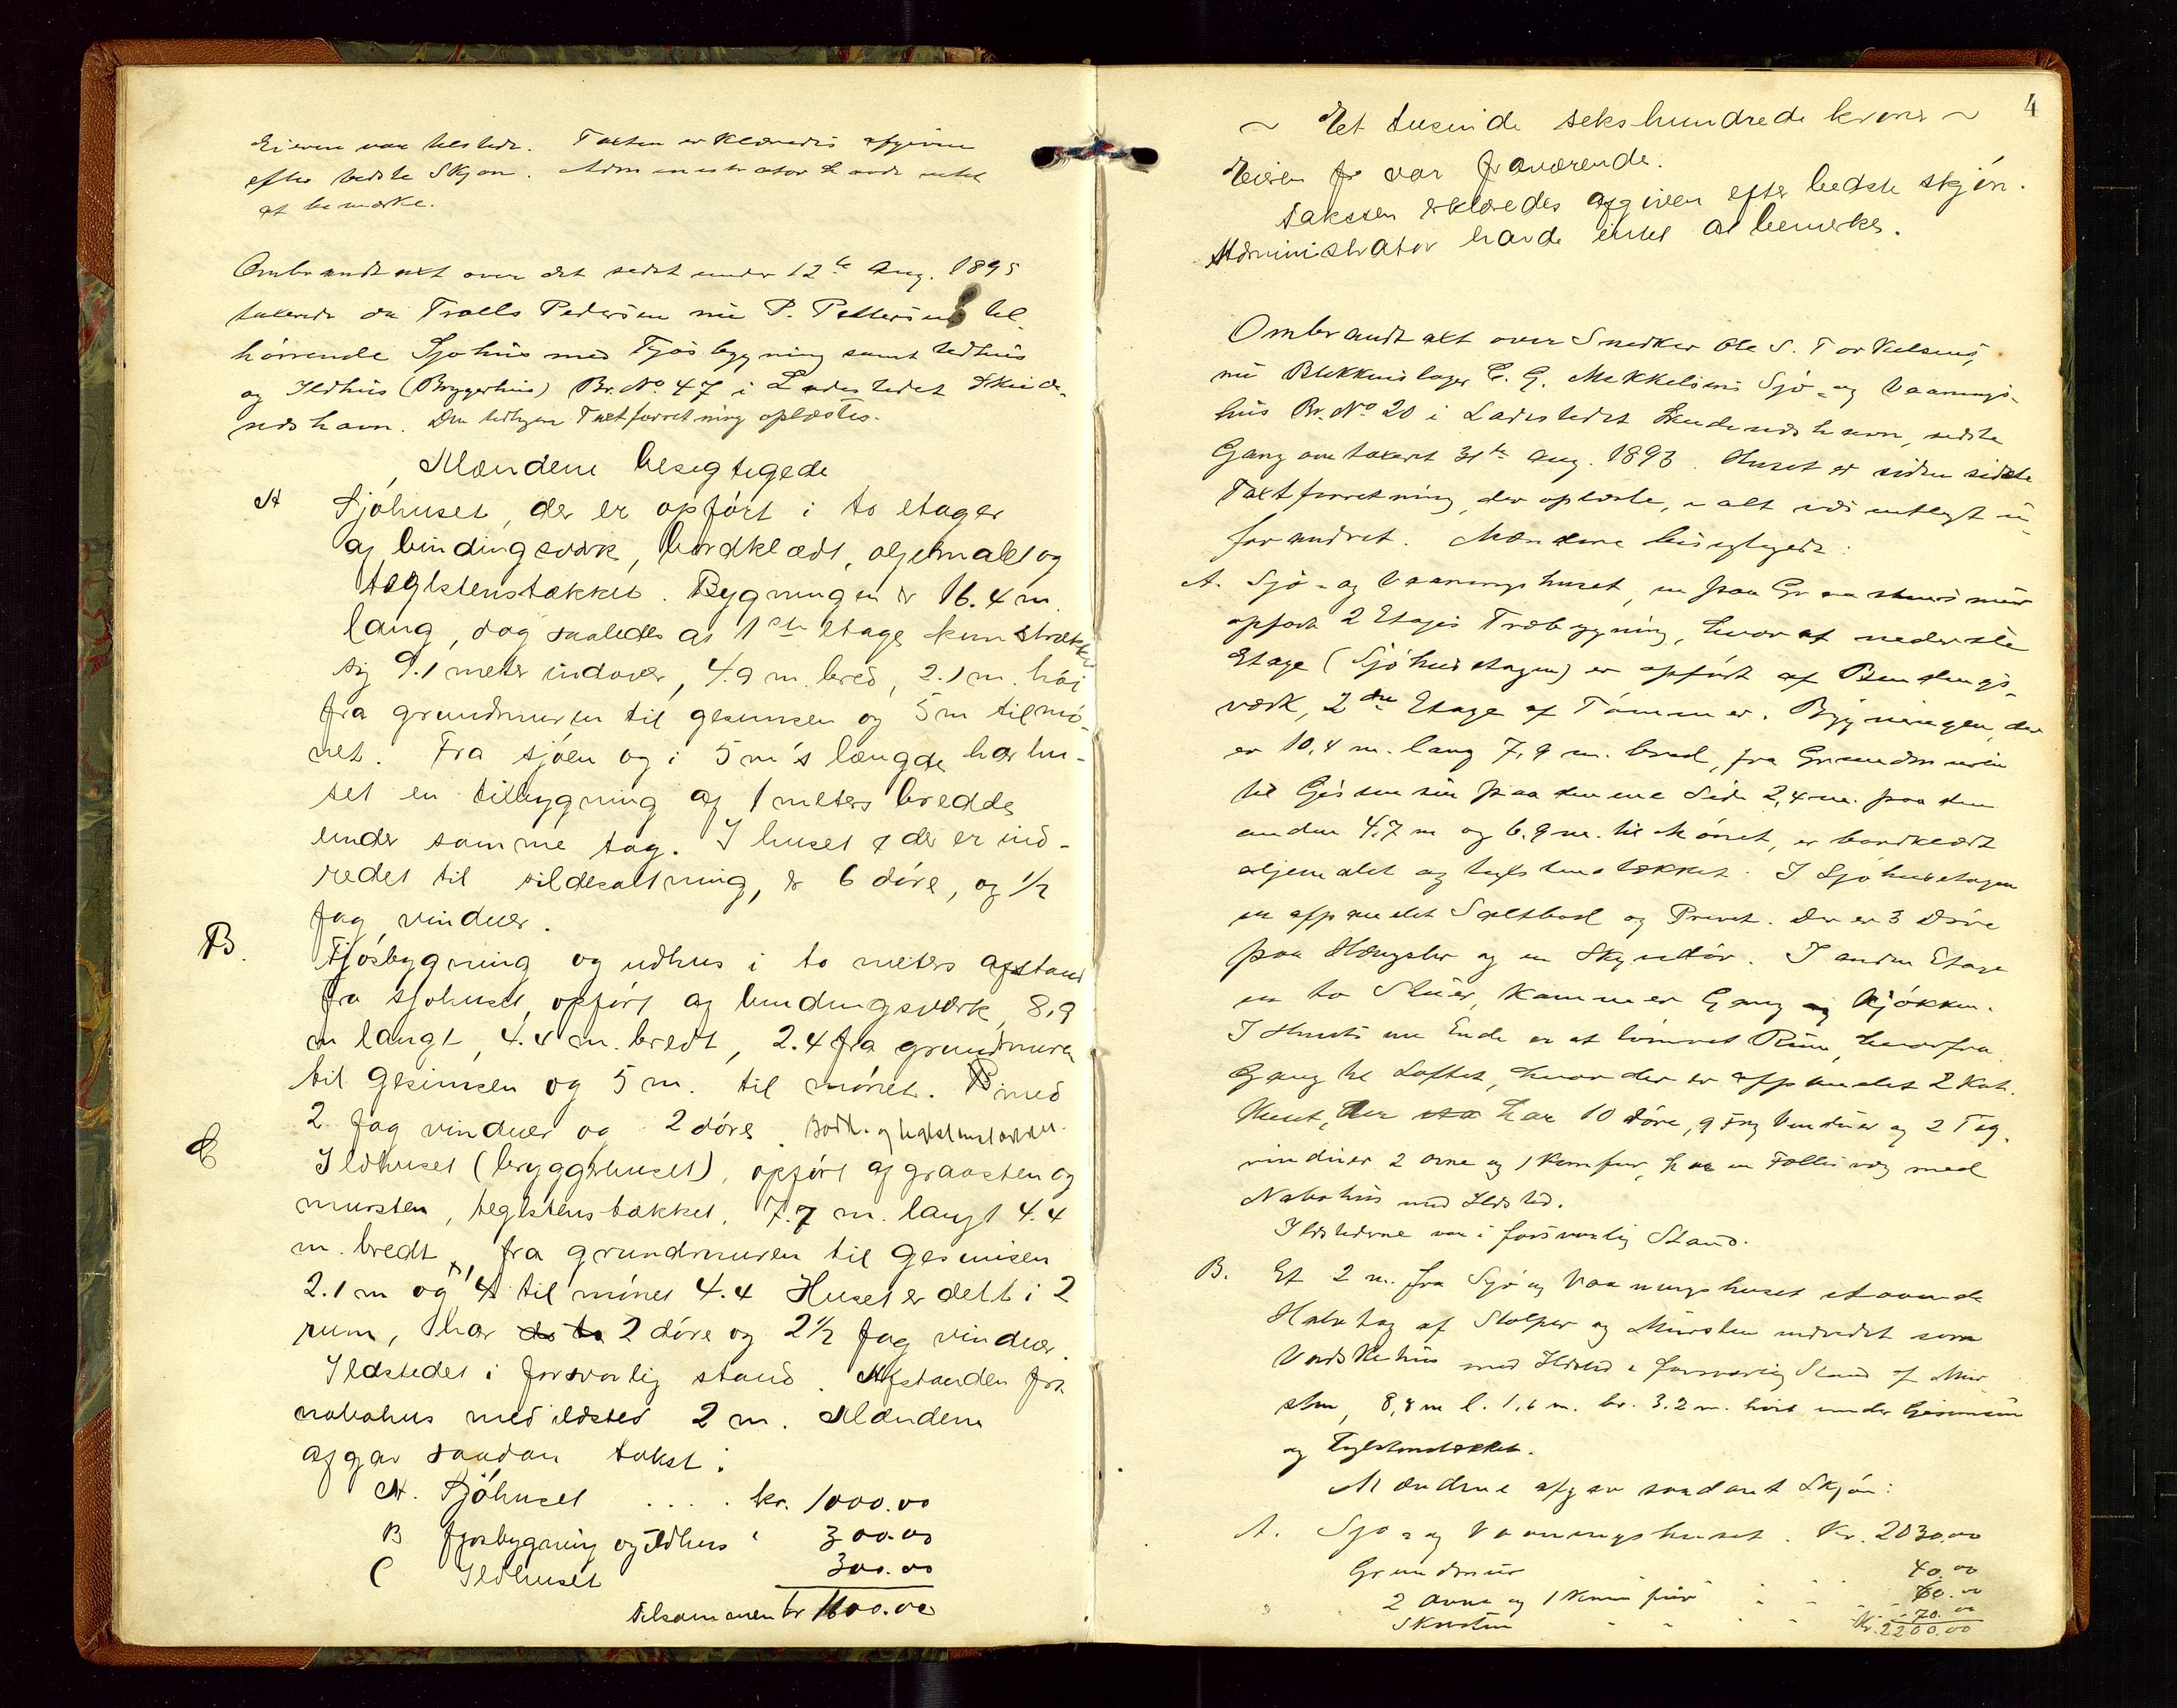 Eieren var tilstede. Taxten erklæredes afgiven
efter bedste Skjøn. Administrator havde intet
at bemærke.
Ombrandtaxt over det sidst under 12te Aug. 1895
taxerede da Troells Pedersen nu P. Pettersens til-
hørende Sjøhus med Fjøsbygning samt Udhus
og Ildhus (Bryggerhus) Br. No 47 i Ladestedet Skude-
neshavn. Den tidligere Taxtforretning oplæstes.
Mændene besigtigede
A Sjøhuset, der er opført i to etager
af bindingsværk, bordklædt, oljemalet og
teglstenstækket. Bygningen er 16.4 m.
lang, dog saaledes at 1ste etage kun strækker
sig 9.1 meter indover, 4.9 m. bred, 2.1 m. høi
fra grundmuren til gesimsen og 5 m til mø-
net. Fra sjøen og i 5 m's længde har hu-
set en tilbygning af 1 meters bredde
under samme tag. I huset der er ind-
redet til sildesaltning, er 6 døre, og 1/2
fag vinduer.
B. Fjøsbygning og udhus i to meters afstand
fra sjøhuset, opført af bindingsværk, 8,9
m langt, 4.4 m. bredt, 2.4 fra grundmuren
til gesimsen og 5 m. til mønet. med
2 fag vinduer og 2 døre. Bordk. og teglstenstækket.
C Ildhuset (bryggerhuset), opført af graasten og
mursten, teglstenstækket, 7.7 m. langt 4.4
m. bredt, fra grundmuren til gesimsen
2.1 m og til mønet 4.4 Huset er delt i 2
rum, har 2 døre og 2 1/2 fag vinduer.
Ildstedet i forsvarlig stand. Afstanden fra
nabohus med ildsted 2 m. Mændene
afgav saadan takst:
A. Sjøhuset .... kr. 1000.00
B fjøsbygning og Udhus " 300.00
C Ildhuset 300.00
Tilsammen kr 1600.00
4
~ Et tusinde sekshundrede kroner ~
Eieren var fraværende.
Taksten erklæredes afgiven efter bedste skjøn.
Administrator havde intet at bemerke.
Ombrandtaxt over Snedker Ole S. Torkelsens,
nu Blikkenslager C. G. Mikkelsens Sjø- og Vaanings-
hus Br. No 20 i Ladestedet Skudeneshavn, sidste
Gang omtaxeret 31te Aug. 1893. Huset er siden sidste
Taxtforretning, der oplæste, i alt væsentligt u-
forandret. Mændene besigtigede:
A. Sjø- og Vaaningshuset, en paa Graastensmur
opført 2 Etages Træbygning, hvoraf nederste
Etage (Sjøhusetagen) er opført af Bindings-
værk, 2den Etage af Tømmer. Bygningen, der
er 10,4 m. lang 7,9 m. bred, fra Grundmuren
til Gesimsen paa den ene Side 2,4 m. paa den
anden 4.7 m og 6.9 m. til Mønet, er bordklædt
oljemalet og teglstenstækket. I Sjøhusetagen
en afpanelet Saltbod og Privet. Der er 3 Døre
paa Hængsler og en Skyvedør. I anden Etage
er to Stuer, Kammer Gang og Kjøkken.
I Husets ene Ende er et tømret Rum, hvorfra
Gang til Loftet, hvor der er afpanelet 2 Kot.
Huset, der har 10 døre, 9 Fag Vinduer og 2 Tag-
vinduer 2 ovne og 1 Komfur, har en Fælles væg med
Nabohus med Ildsted.
Ildstederne var i forsvarlig Stand.
B. Et 2 m. fra Sjø og Vaaningshuset staaende
Halvtag af Stolper og Mursten indredet som
Vaskehus med Ildsted i forsvarlig Stand af Mur-
sten, 8,8 m l. 1,6 m. br. 3.2 m. høit under Gesimsen
og Teglstenstækket.
Mændene afgav saadant Skjøn:
A. Sjø- og Vaaningshuset. Kr. 2030.00
Grundmur 40.00
2 ovne og 1 Komfur 60.00
Skorsten 70.00
Kr. 2200.00